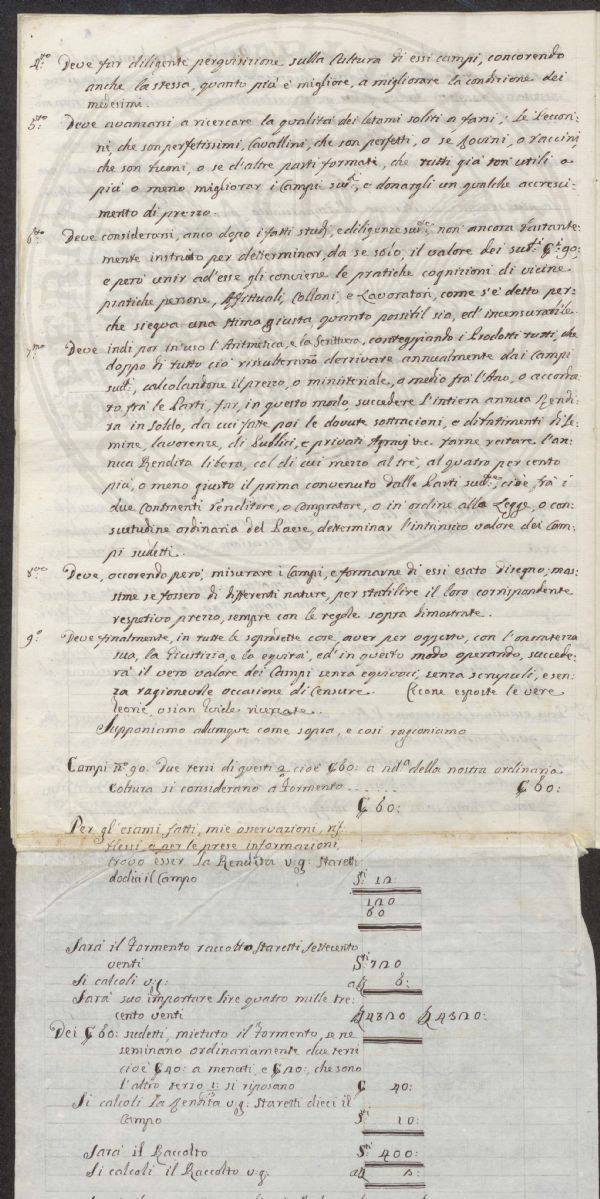 4.to Deve far diligente perquisizione sulla Cultura di essi campi, concorendo
anche la stessa, quanto più è migliore, a migliorare la condizione dei
medesimi.
5.to Deve avanzarsi a ricercare la qualità dei letami soliti a farsi; Se Peccori-
ni, che son perfetissimi, Cavallini, che son perfetti, o se Bovini, o Vaccini,
che son buoni, o se d'altre parti formati, che tutti già son utili a
più o meno migliorar i Campi sud.ti, e donargli un qualche accresci-
mento di prezzo.
6.to Deve considerarsi, anco dopo i fatti studj, e diligenze sud.e, non ancora bastante-
mente instruto per determinar, da se solo, il valore dei sud.ti C.i 90:
e però unir ad esse gli conviene le pratiche cognizioni di vicine
pratiche persone, Affittuali, Colloni, e Lavoratori, come s'è detto per-
che siegua una stima giusta, quanto possibil sia, ed incensurabile.
7.mo Deve indi por in uso l'Aritmetica, e la Scrittura, conteggiando i Prodotti tutti, che
doppo di tutto ciò rissulteranno derrivare annualmente dai Campi
sud.ti, calcolandone il prezzo, o ministeriale, o medio frà l'Ano, o accorda-
to frà le Parti, far, in questo modo, succedere l'intiera annua Rendi-
ta in Soldo, da cui fatte poi le dovute sottrazioni, e difatimenti di Se-
mine, lavorenze, di Publici, e privati Agravj &c. farne restare l'an-
nua Rendita libera, col di cui mezzo al trè, al quatro per cento
più, o meno giusto il prima convenuto dalle Parti sud.te, cioè, frà i
due Contraenti Venditore, o Compratore, o in ordine alla Legge, o con-
suetudine ordinaria del Paese, determinar l'intrinsico valore dei Cam-
pi sudetti.
8.vo Deve, occorendo però, misurare i Campi, e formarne di essi esato disegno; mas-
sime se fossero di differenti nature, per stabilire il loro corrispondente
respetivo prezzo, sempre con le regole sopra dimostrate.
9.o Deve finalmente, in tutte le sopradette cose, aver per oggetto, con l'onoratezza
sua, la Giustizia, e la equità, ed in questo modo operando, succede-
rà il vero valore dei Campi senza equivoci, senza scrupuli, e sen-
za ragionevole occasione di Censure. Eccone esposte le vere
Teorie, o sian Guide ricercate.
Supponiamo adunque come sopra, e così ragioniamo
Campi n.o 90. Due terzi di questi cioè C 60: a nd.a della nostra ordinaria
Coltura si considerano a formento ...... C 60:
C 60:
Per gl'esami fatti, mie osservazioni, rif-
flessi, e per le prese informazioni,
trovo esser la Rendita v:g: Staretti
dodici il Campo S.ti 12
120
60
Sarà il formento raccolto Staretti settecento
venti S.ti 720
Si calcoli v:g: a £ 6:
Sarà suo importare lire quatro mille tre-
cento venti £ 4320 £ 4320:
Dei C 60: sudetti, mietuto il formento, se ne
seminano ordinariamente due terzi
cioè C 40: a menuti, e C 20:, che sono
l'altro terzo si riposano C 40:
Si calcoli la Rendita v:g: Staretti dieci il
Campo S.ti 10:
Sarà il Raccolto S.ti 400:
Si calcoli il Raccolto v:g: a £